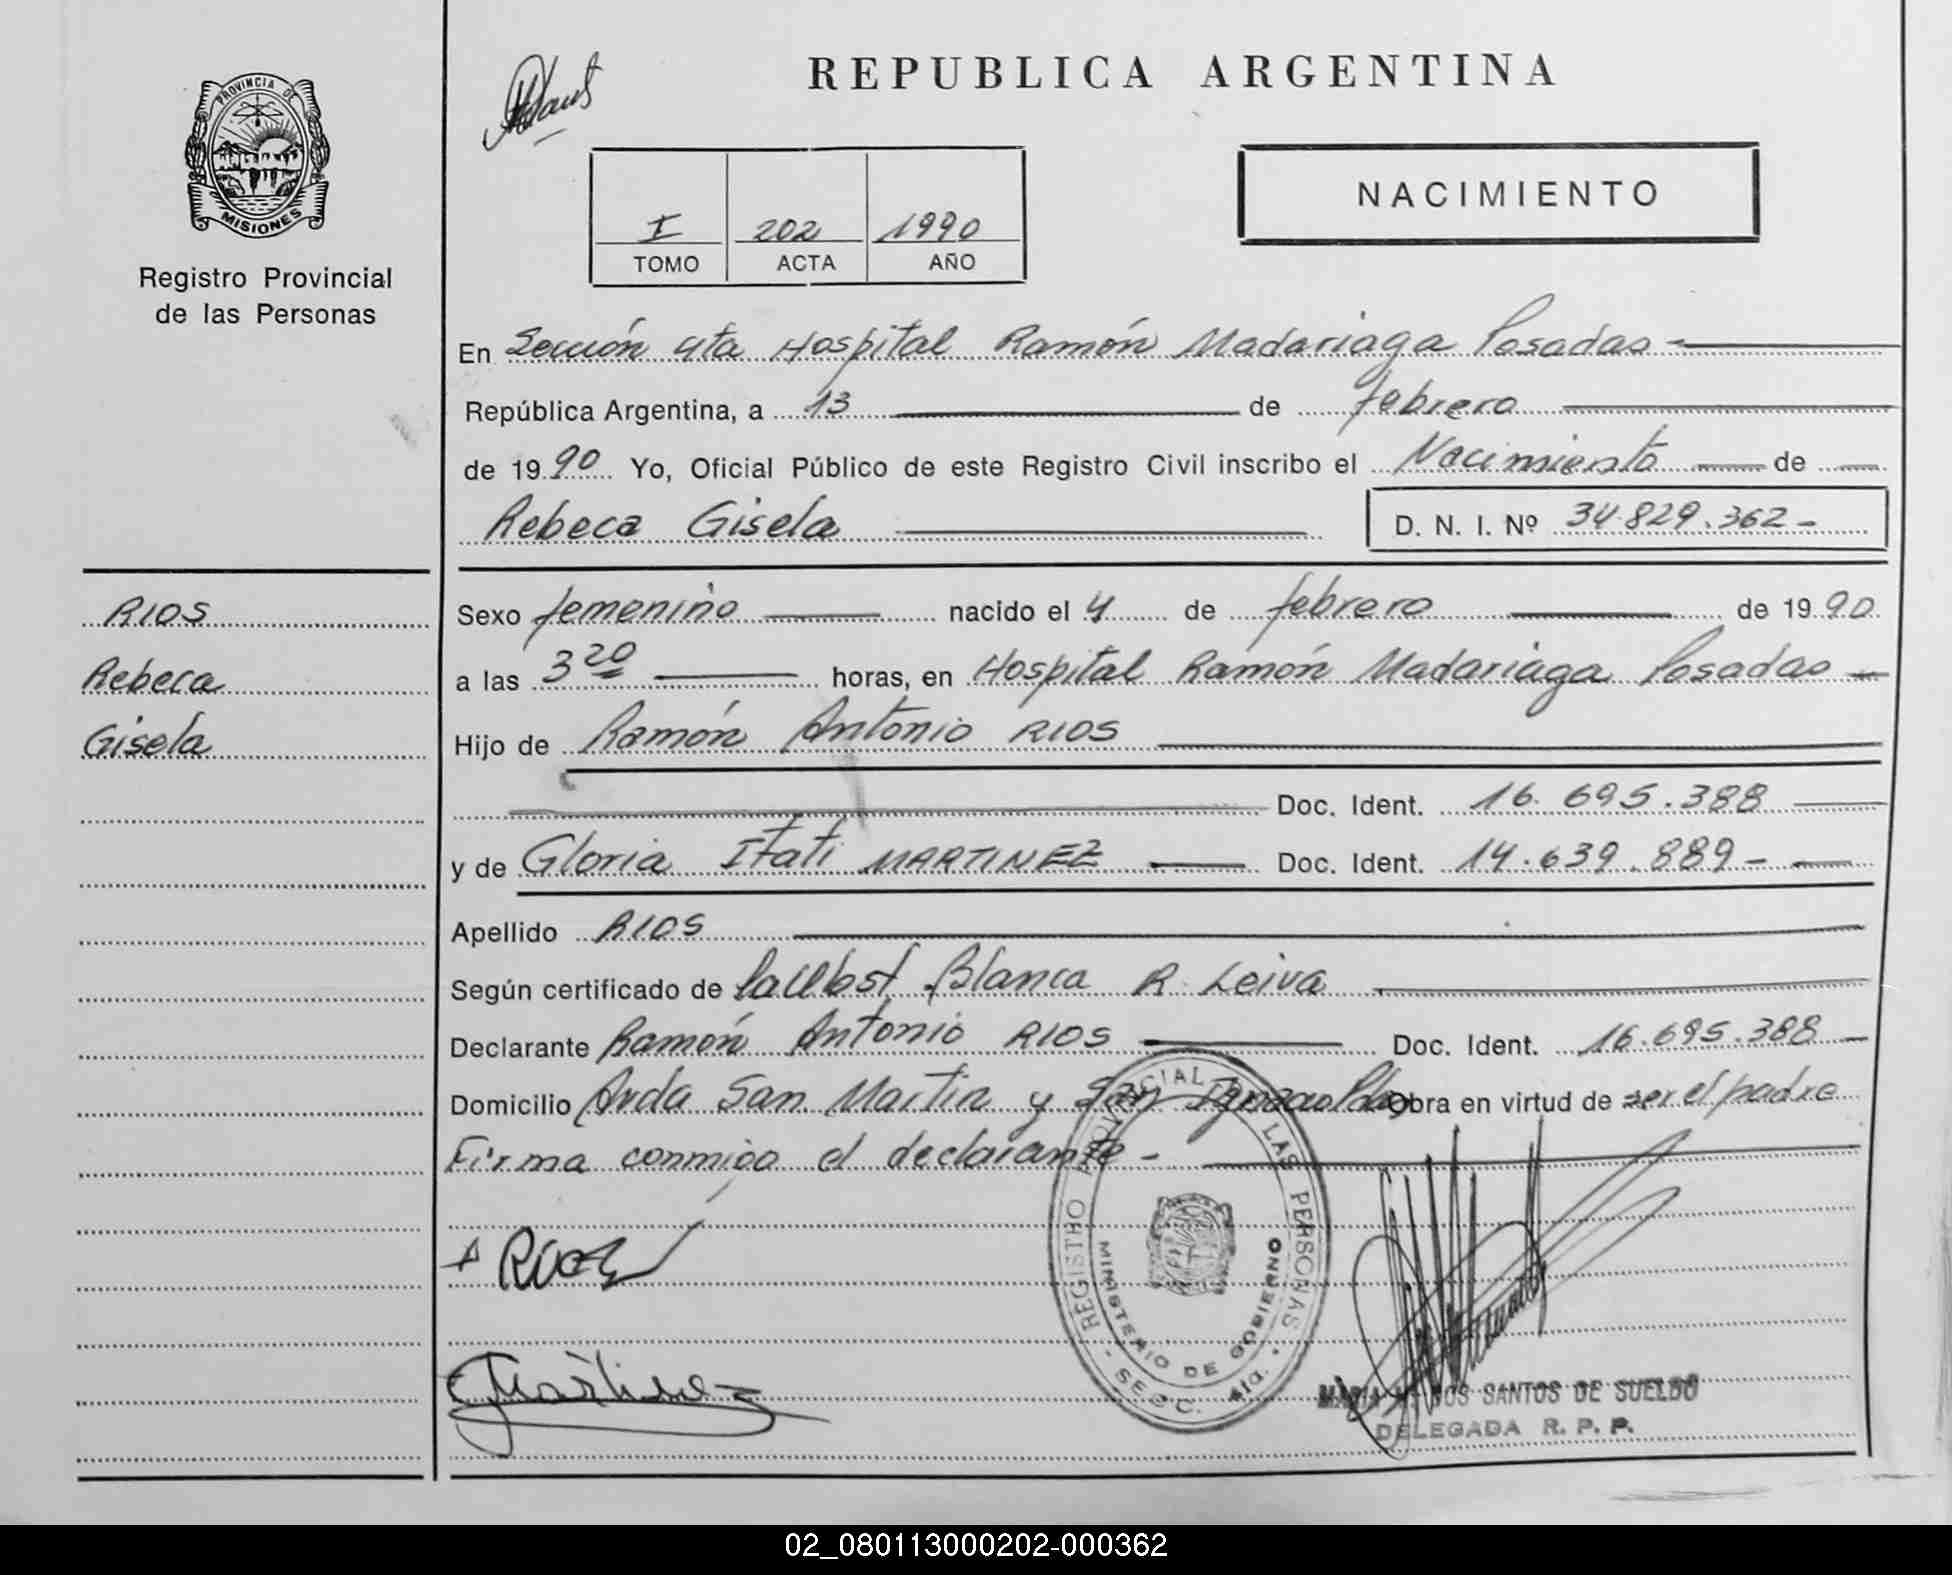 PROVINCIA DE
MISIONES
Registro Provincial
de las Personas
RIOS
Rebeca
Gisela
REPUBLICA ARGENTINA
NACIMIENTO
I 202 1990
TOMO ACTA AÑO
En Sección 4ta Hospital Ramón Madariaga Posadas -
República Argentina, a 13 de febrero
de 1990 Yo, Oficial Público de este Registro Civil inscribo el Nacimiento de
Rebeca Gisela D. N. I. Nº 34.829.362-
Sexo femenino nacido el 4 de febrero de 1990
a las 3 20 horas, en Hospital Ramón Madariaga Posadas
Hijo de Ramón Antonio RIOS
Doc. Ident. 16.695.388
y de Gloria Itati MARTINEZ Doc. Ident. 14.639.889-
Apellido RIOS
Según certificado de Blanca R. Leiva
Declarante Ramón Antonio RIOS Doc. Ident. 16.695.388
Domicilio Avda San Martin y San Obra en virtud de ser el padre
Firma conmigo el declarante -
REGISTRO PROVINCIAL LAS PERSONAS
MINISTERIO DE GOBIERNO
SECC. 4ta.
DOS SANTOS DE SUELDO
DELEGADA R. P. P.
02_080113000202-000362